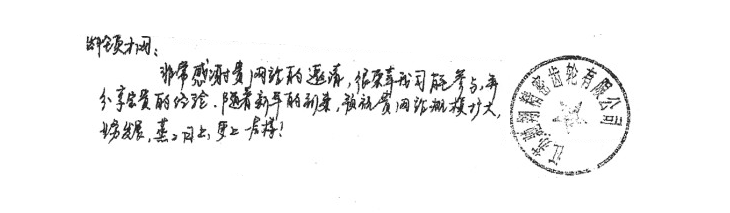 非常感谢贵网站的邀请，很荣幸我司能参与，并
分享宝贵的经验。随着新年的到来，预祝贵网站规模扩大，
业务发展，蒸蒸日上，更上一层楼！
精密齿轮有限公司